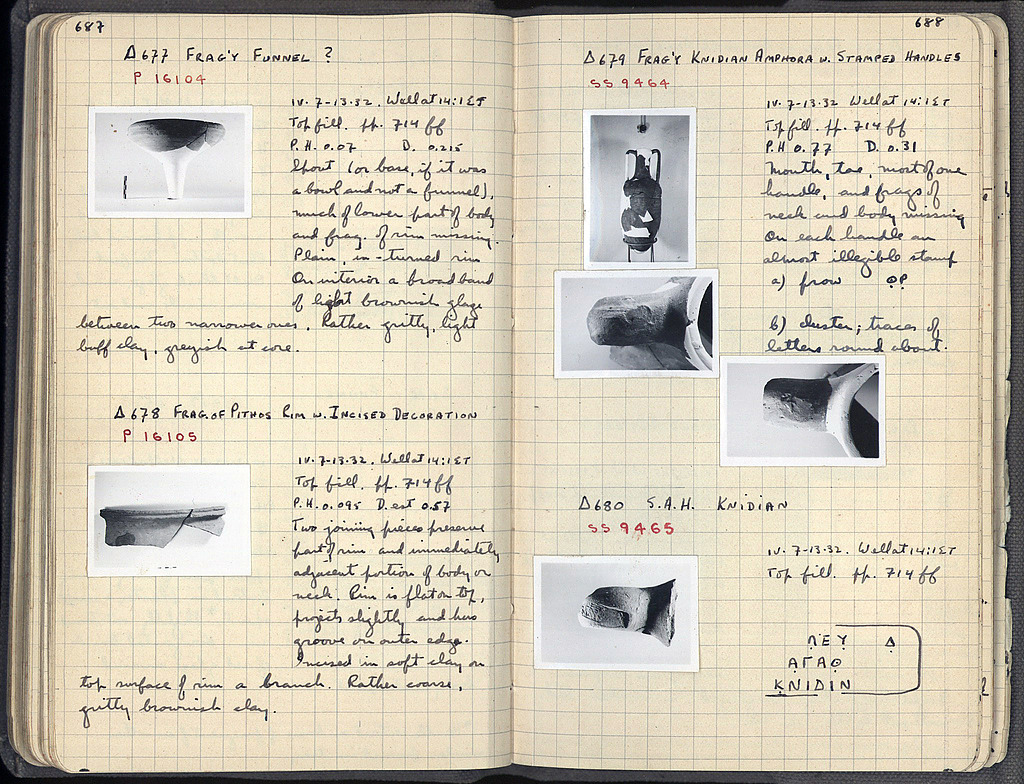 687
Δ677 FRAG'Y FUNNEL ?
P 16104
IV. 7-13.32. Well at 14:1ΣΤ
Top fill. pp. 714 ff
P.H. 0.07 D. 0.215
Spout (or base, if it was
a bowl and not a funnel),
much of lower part of body
and frag. of rim missing.
Plain, in-turned rim
On interior a broad band
of light brownish glaze
between two narrower ones. Rather gritty, light
buff clay, greyish at core.
Δ678 FRAG. OF PITHOS RIM W. INCISED DECORATION
P 16105
IV. 7-13.32. Well at 14:1ΣΤ
Top fill. pp. 714 ff
P.H. 0.095 D. est 0.57
Two joining pieces preserve
part of rim and immediately
adjacent portion of body or
neck. Rim is flat on top,
projects slightly and has
groove on outer edge.
Incised in soft clay on
top surface of rim a branch. Rather coarse,
gritty brownish clay.
688
Δ679 FRAG'Y KNIDIAN AMPHORA W. STAMPED HANDLES
SS 9464
IV. 7-13.32 Well at 14:1ΣΤ
Top fill. pp. 714 ff
P.H 0.77 D. 0.31
Mouth, toe, most of one
handle, and frags of
neck and body missing
On each handle an
almost illegible stamp
a) prow ΟΡ
b) cluster; traces of
letters round about.
Δ680 S.A.H. KNIDIAN
SS 9465
IV. 7-13.32. Well at 14:1ΣΤ
Top fill. pp. 714 ff
ΠΕΥ Δ
ΑΓΑΘ
ΚΝΙDΙΝ